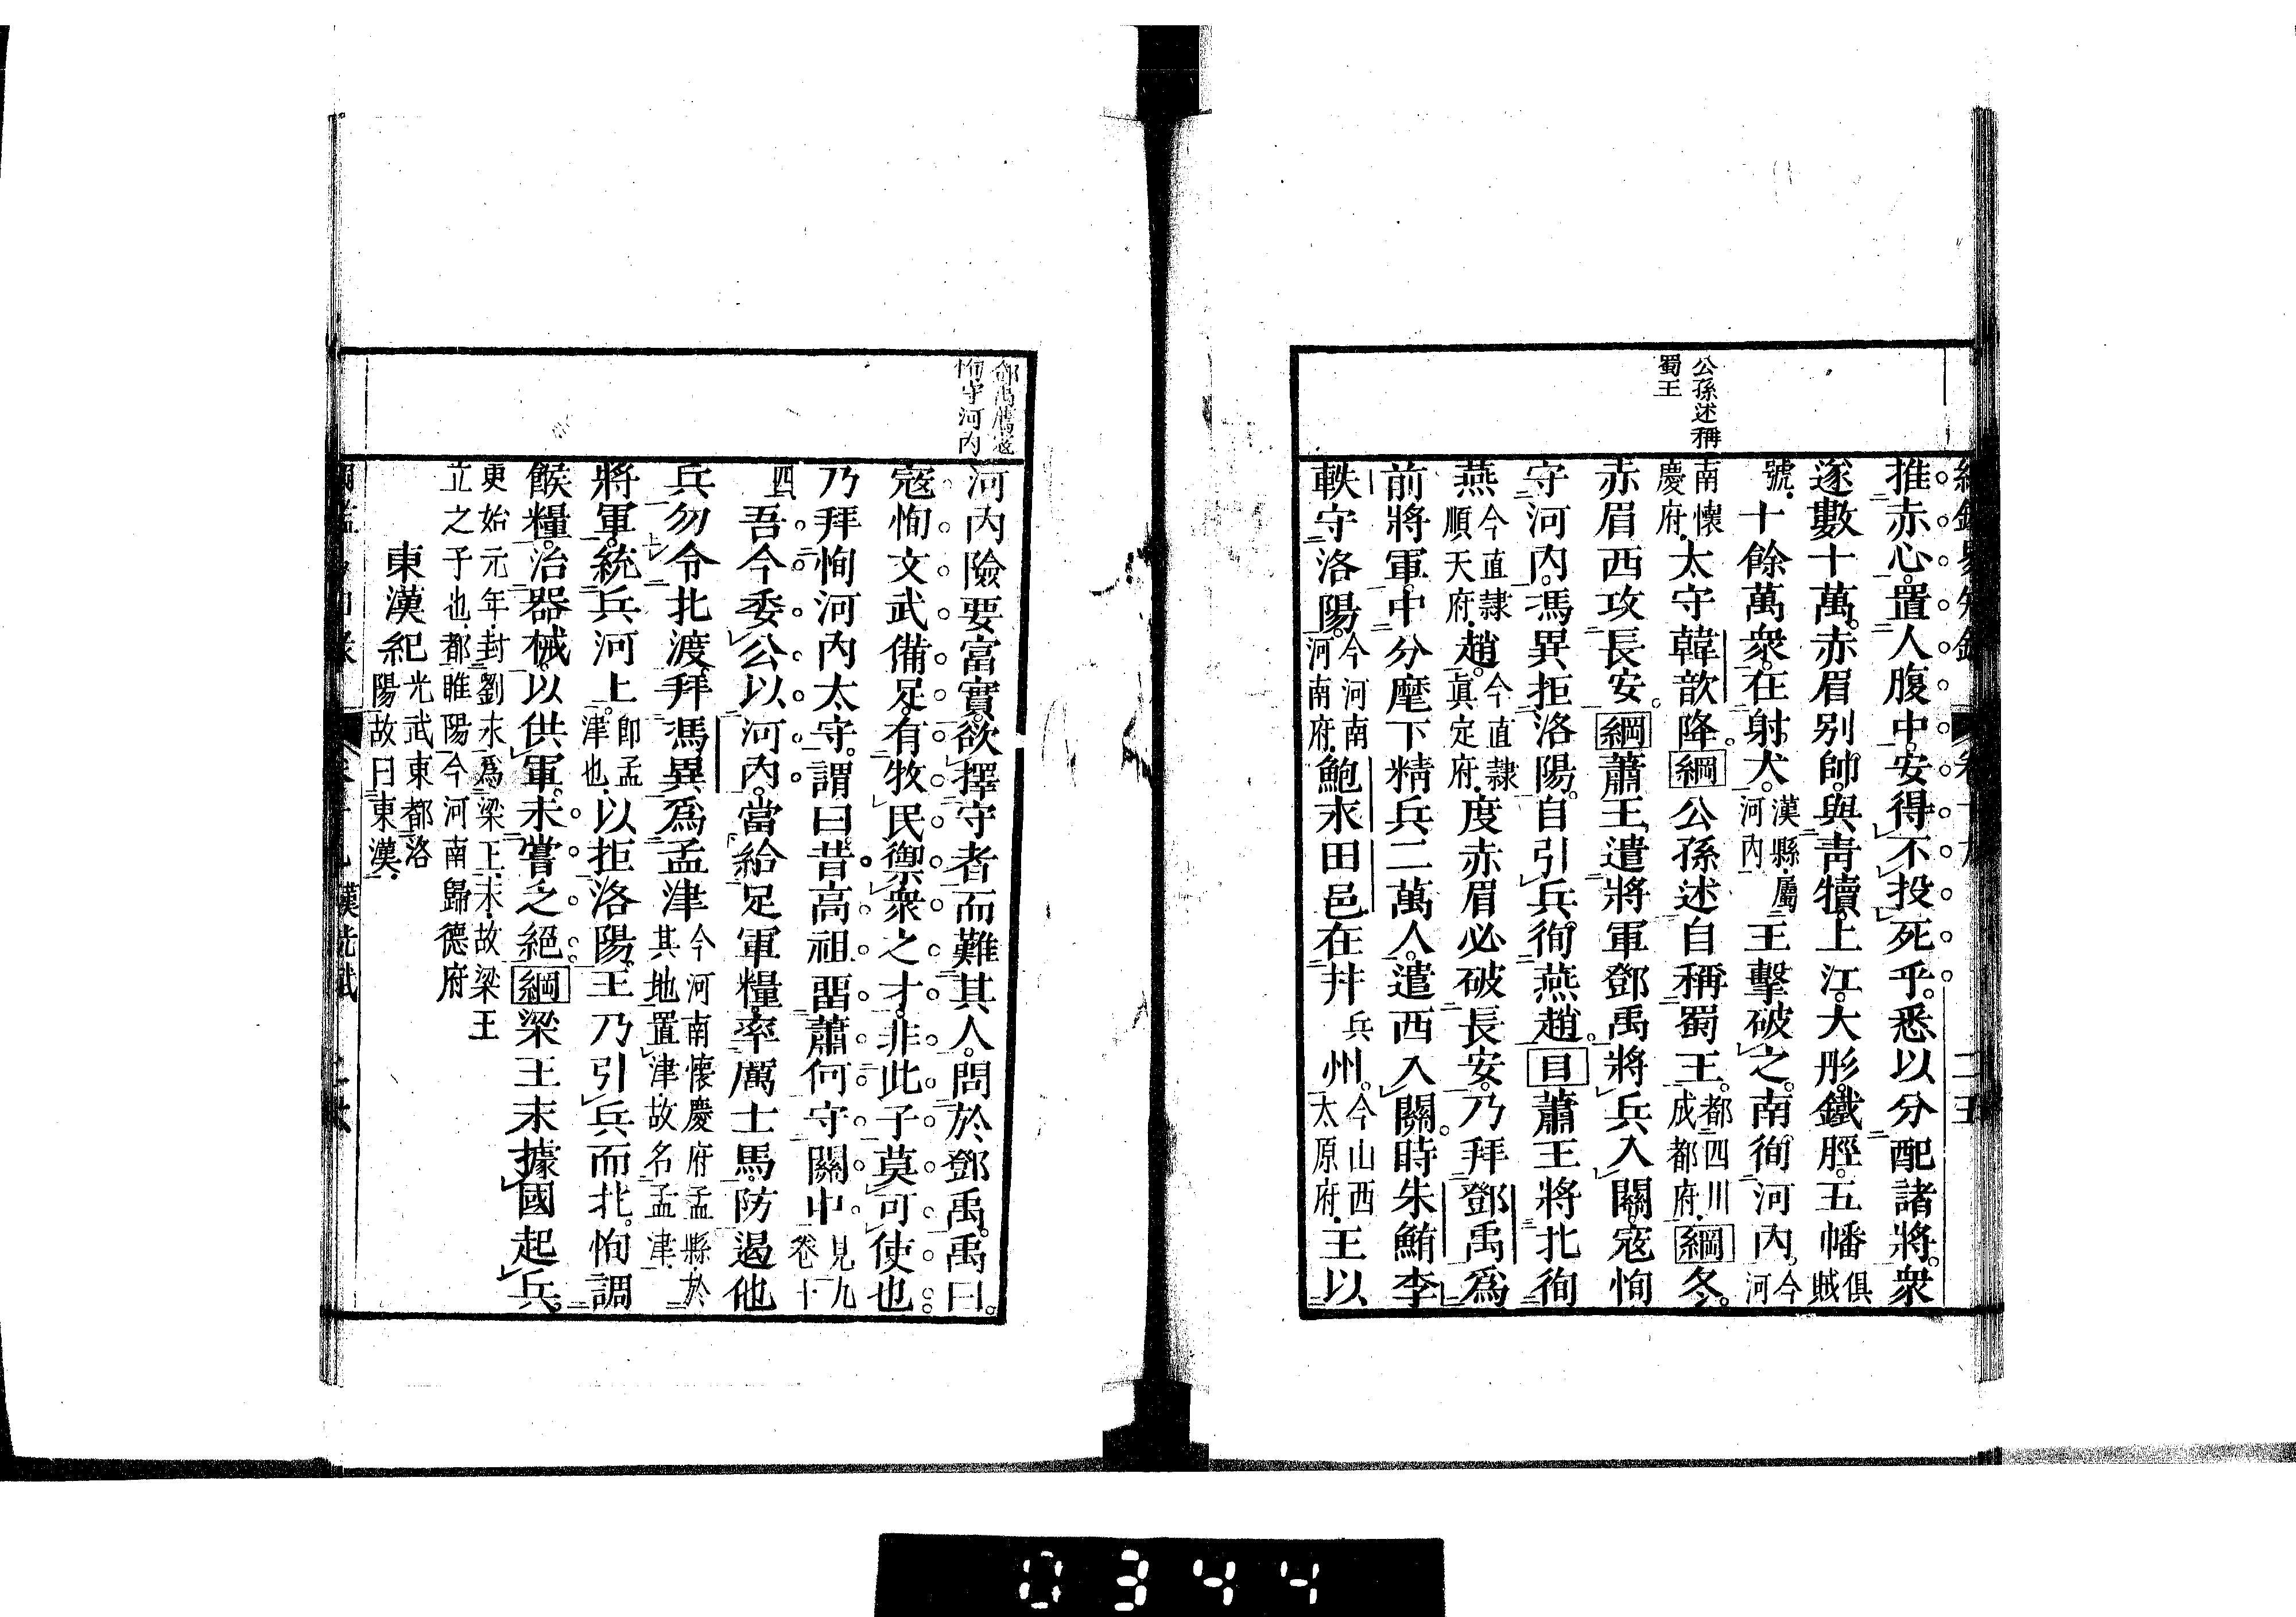 公孫述稱
蜀王
推赤心。置人腹中。安得不投死乎。悉以分配諸將。衆
遂數十萬。赤眉别帥。與青犢。上江。大彤。鐵脛。五幡俱賊
號。十餘萬衆。在射犬。漢縣。屬河內王擊破之。南徇河內。今河
南懷慶府。太守韓歆降。綱公孫述自稱蜀王。都四川成都府。綱冬。
赤眉西攻長安。綱蕭王遣將軍鄧禹將兵入關。寇恂
守河內。馮異拒洛陽。自引兵徇燕趙。目蕭王將北徇
燕今直隸順天府。趙。今直隸真定府。度赤眉必破長安。乃拜鄧禹爲
前將軍。中分麾下精兵二萬人。遣西入關。時朱鮪李
軼守洛陽。今河南河南府。鮑永田邑在幷兵州。今山西太原府。王以
鄧禹薦寇
恂守河內
河內險要富實。欲擇守者而難其人。問於鄧禹。禹曰。
寇恂文武備足。有牧民禦衆之才。非此子莫可使也
乃拜恂河內太守。謂曰。昔高祖畱蕭何守關中。見九卷十
四吾今委公以河內。當給足軍糧。率厲士馬。防遏他
兵勿令北渡。拜馮異爲孟津今河南懷慶府孟縣。於其地置津。故名孟津
將軍。統兵河上。卽孟津也。以拒洛陽。王乃引兵而北。恂調
餱糧。治器械。以供軍。未嘗乏絕綱梁王永據國起兵。
更始元年。封劉永爲梁王。永。故梁王
立之子也。都睢陽今河南歸德府
東漢紀光武東都洛陽故曰東漢。